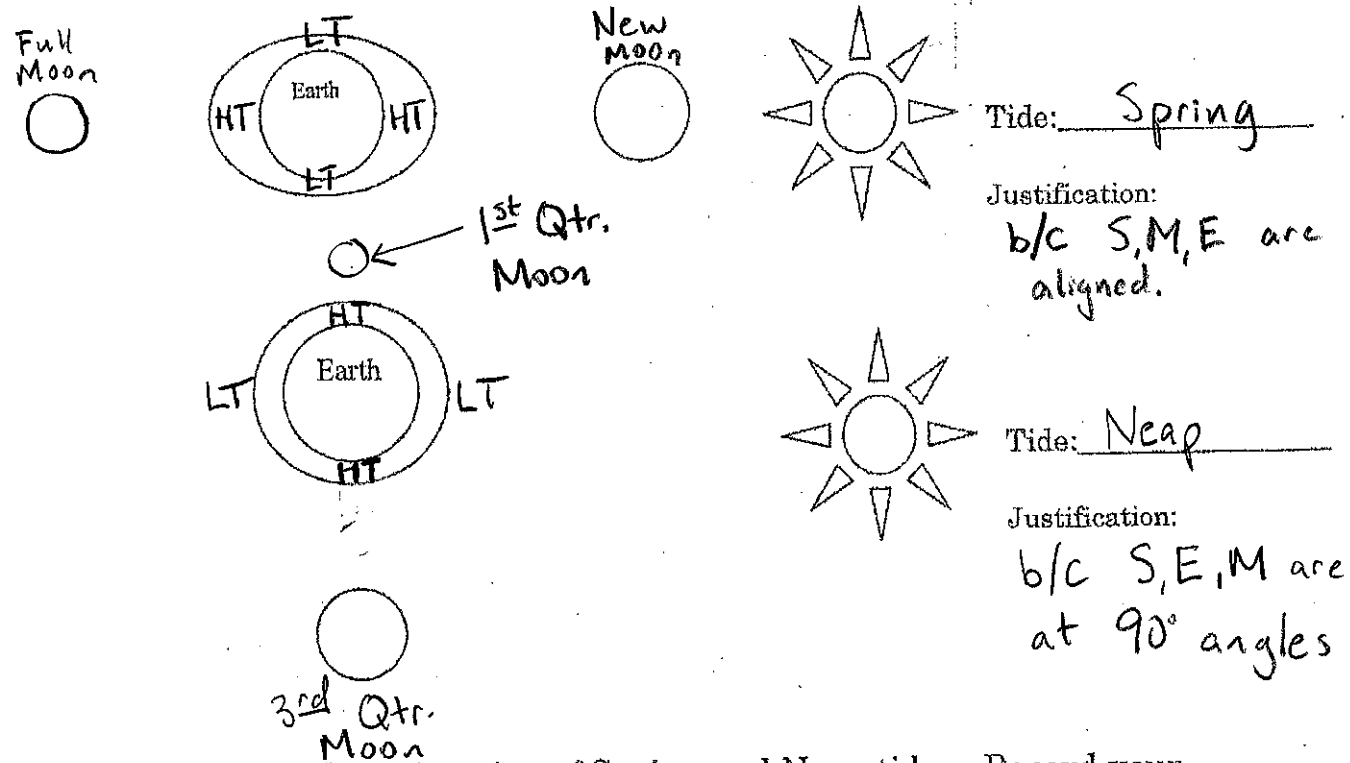 Full
Moon
LT
Earth
HT
HT
LT
New
Moon
Tide: Spring
Justification:
b/c S,M,E are
aligned.
1st Qtr.
Moon
HT
Earth
LT
LT
HT
Tide: Neap
Justification:
b/c S,E,M are
at 90° angles
3rd Qtr.
Moon